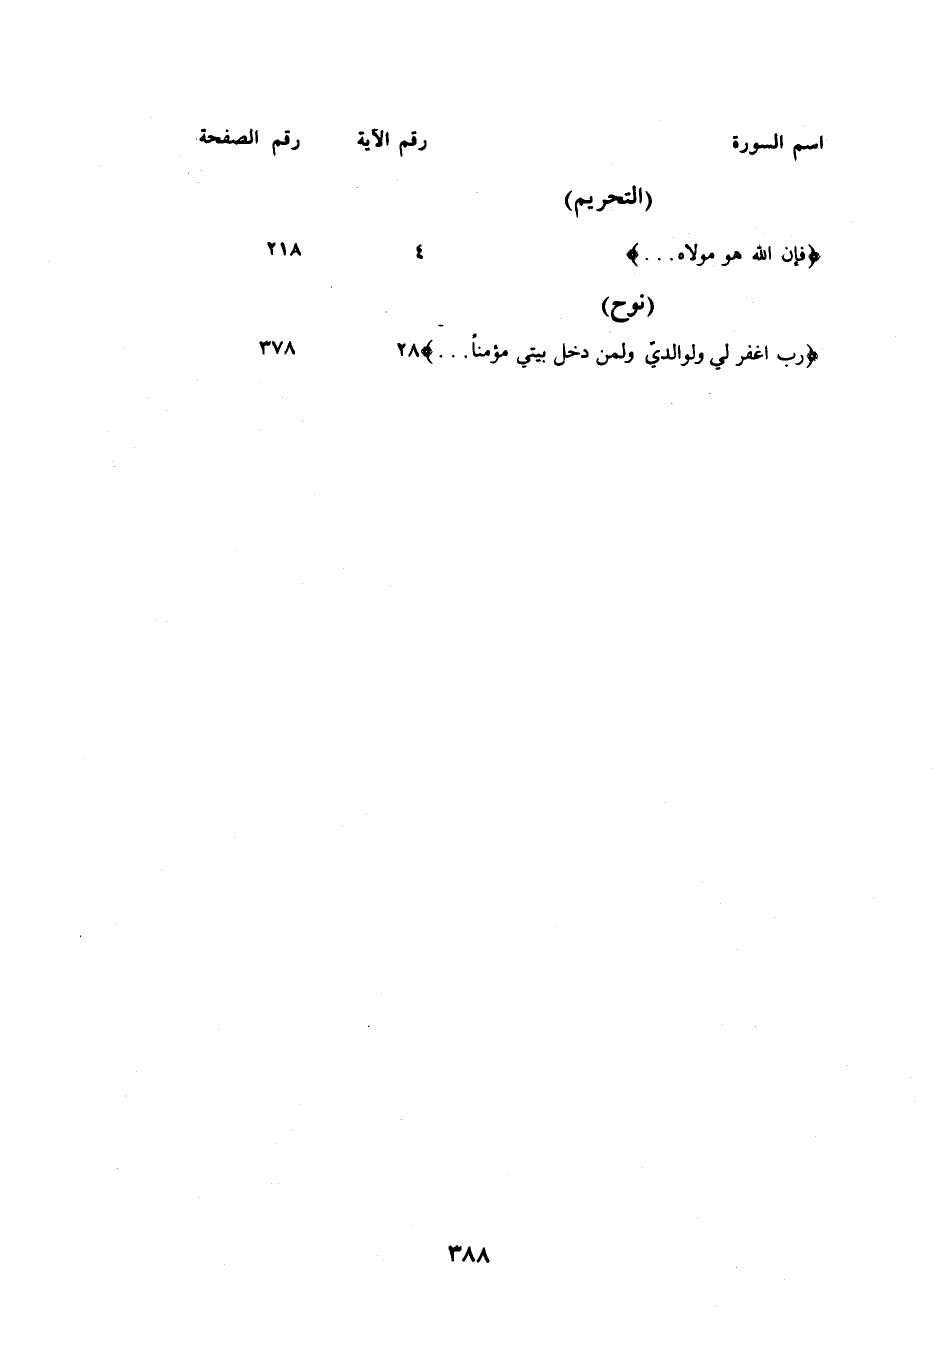 اسم السورة رقم الآية رقم الصفحة
(التحريم)
﴿فإن الله هو مولاه...﴾ ٤ ٢١٨
(نوح)
﴿رب اغفر لي ولوالديّ ولمن دخل بيتي مؤمناً...﴾ ٢٨ ٣٧٨
٣٨٨